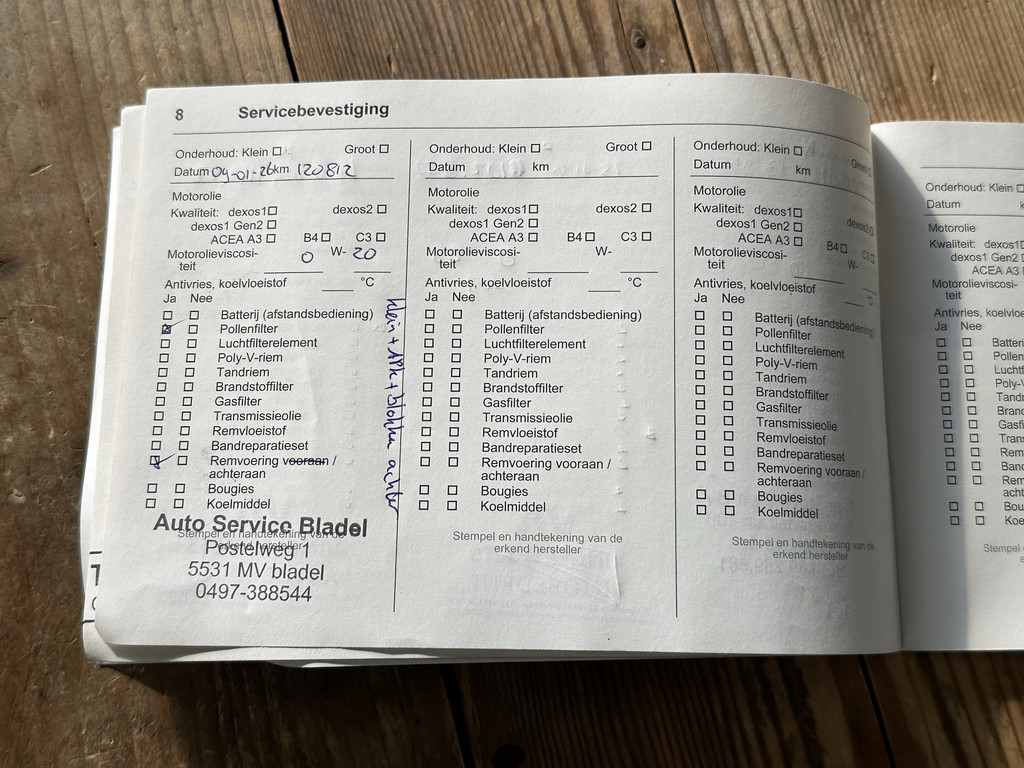 8 Servicebevestiging
Onderhoud: Klein ☐ Groot ☐
Datum 09-01-26 km 120812
Motorolie
Kwaliteit: dexos1 ☐ dexos2 ☐
dexos1 Gen2 ☐
ACEA A3 ☐ B4 ☐ C3 ☐
Motorolieviscosi-
teit 0 W- 20
Antivries, koelvloeistof °C
Ja Nee
☐ ☐ Batterij (afstandsbediening)
☑ ☐ Pollenfilter
☐ ☐ Luchtfilterelement
☐ ☐ Poly-V-riem
☐ ☐ Tandriem
☐ ☐ Brandstoffilter
☐ ☐ Gasfilter
☐ ☐ Transmissieolie
☐ ☐ Remvloeistof
☐ ☐ Bandreparatieset
☑ ☐ Remvoering vooraan /
achteraan
☐ ☐ Bougies
☐ ☐ Koelmiddel
Stempel en handtekening van de
erkend hersteller
Auto Service Bladel
Postelweg 1
5531 MV bladel
0497-388544
klein + APK + Blokken achter
Onderhoud: Klein ☐ Groot ☐
Datum km
Motorolie
Kwaliteit: dexos1 ☐ dexos2 ☐
dexos1 Gen2 ☐
ACEA A3 ☐ B4 ☐ C3 ☐
Motorolieviscosi-
teit W-
Antivries, koelvloeistof °C
Ja Nee
☐ ☐ Batterij (afstandsbediening)
☐ ☐ Pollenfilter
☐ ☐ Luchtfilterelement
☐ ☐ Poly-V-riem
☐ ☐ Tandriem
☐ ☐ Brandstoffilter
☐ ☐ Gasfilter
☐ ☐ Transmissieolie
☐ ☐ Remvloeistof
☐ ☐ Bandreparatieset
☐ ☐ Remvoering vooraan /
achteraan
☐ ☐ Bougies
☐ ☐ Koelmiddel
Stempel en handtekening van de
erkend hersteller
Onderhoud: Klein ☐ Groot ☐
Datum km
Motorolie
Kwaliteit: dexos1 ☐ dexos2 ☐
dexos1 Gen2 ☐
ACEA A3 ☐ B4 ☐ C3 ☐
Motorolieviscosi-
teit W-
Antivries, koelvloeistof °C
Ja Nee
☐ ☐ Batterij (afstandsbediening)
☐ ☐ Pollenfilter
☐ ☐ Luchtfilterelement
☐ ☐ Poly-V-riem
☐ ☐ Tandriem
☐ ☐ Brandstoffilter
☐ ☐ Gasfilter
☐ ☐ Transmissieolie
☐ ☐ Remvloeistof
☐ ☐ Bandreparatieset
☐ ☐ Remvoering vooraan /
achteraan
☐ ☐ Bougies
☐ ☐ Koelmiddel
Stempel en handtekening van de
erkend hersteller
Onderhoud: Klein ☐
Datum
Motorolie
Kwaliteit: dexos1
dexos1 Gen2
ACEA A3
Motorolieviscosi-
teit
Antivries, koelvloe
Ja Nee
☐ ☐ Batteri
☐ ☐ Pollen
☐ ☐ Lucht
☐ ☐ Poly-V
☐ ☐ Tand
☐ ☐ Bran
☐ ☐ Gasf
☐ ☐ Tran
☐ ☐ Rem
☐ ☐ Ban
☐ ☐ Rem
acht
☐ ☐ Bou
☐ ☐ Ko
Stempel e